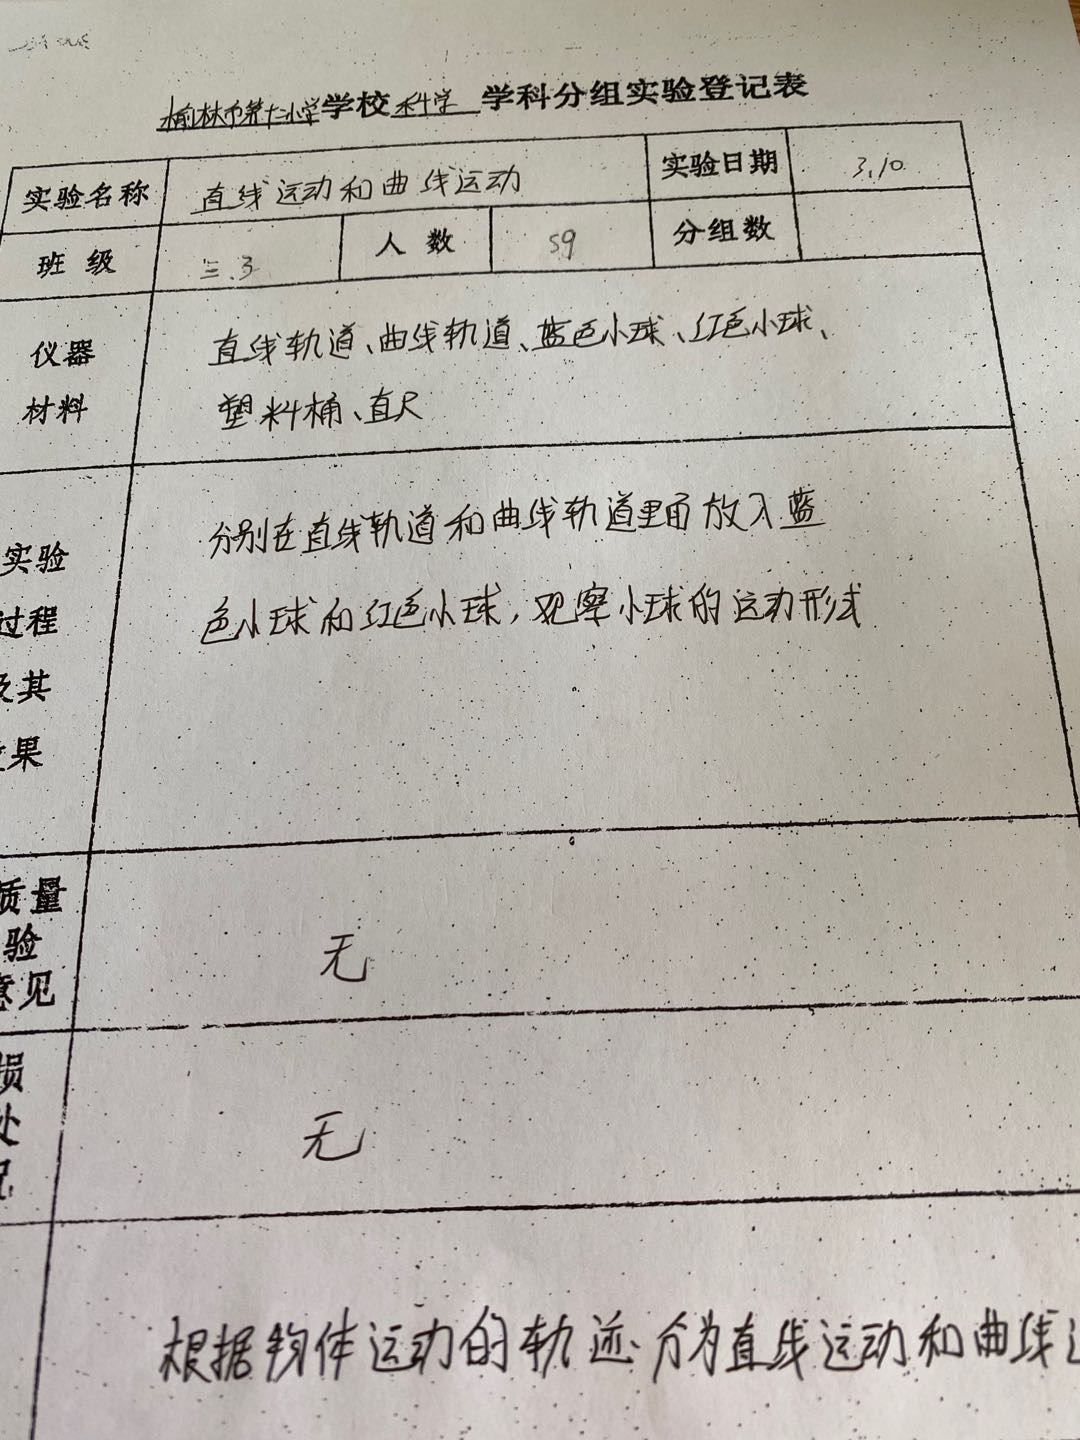 榆林市第十二小学学校科学 学科分组实验登记表
实验名称 直线运动和曲线运动 实验日期 3.10
班 级 三.3 人 数 59 分组数
仪器 直线轨道、曲线轨道、蓝色小球、红色小球、
材料 塑料桶、直尺
分别在直线轨道和曲线轨道里面放入蓝
实验
过程 色小球和红色小球,观察小球的运动形式
及其
果
质量
验 无
意见
损
处 无
况
根据物体运动的轨迹.分为直线运动和曲线